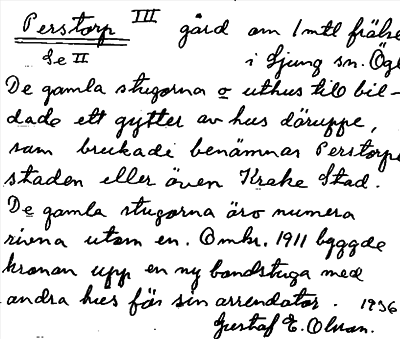 Perstorp III gård om 1 mtl frälse
Se II i Ljung sn. Ögl
De gamla stugorna o uthus till bil-
dade ett gytter av hus däruppe,
som brukade benämnas Perstorps
staden eller även Krake Stad.
De gamla stugorna äro numera
rivna utom en. Omkr. 1911 byggde
kronan upp en ny bondstuga med
andra hus för sin arrendator. 1936
Gustaf E. Olson.